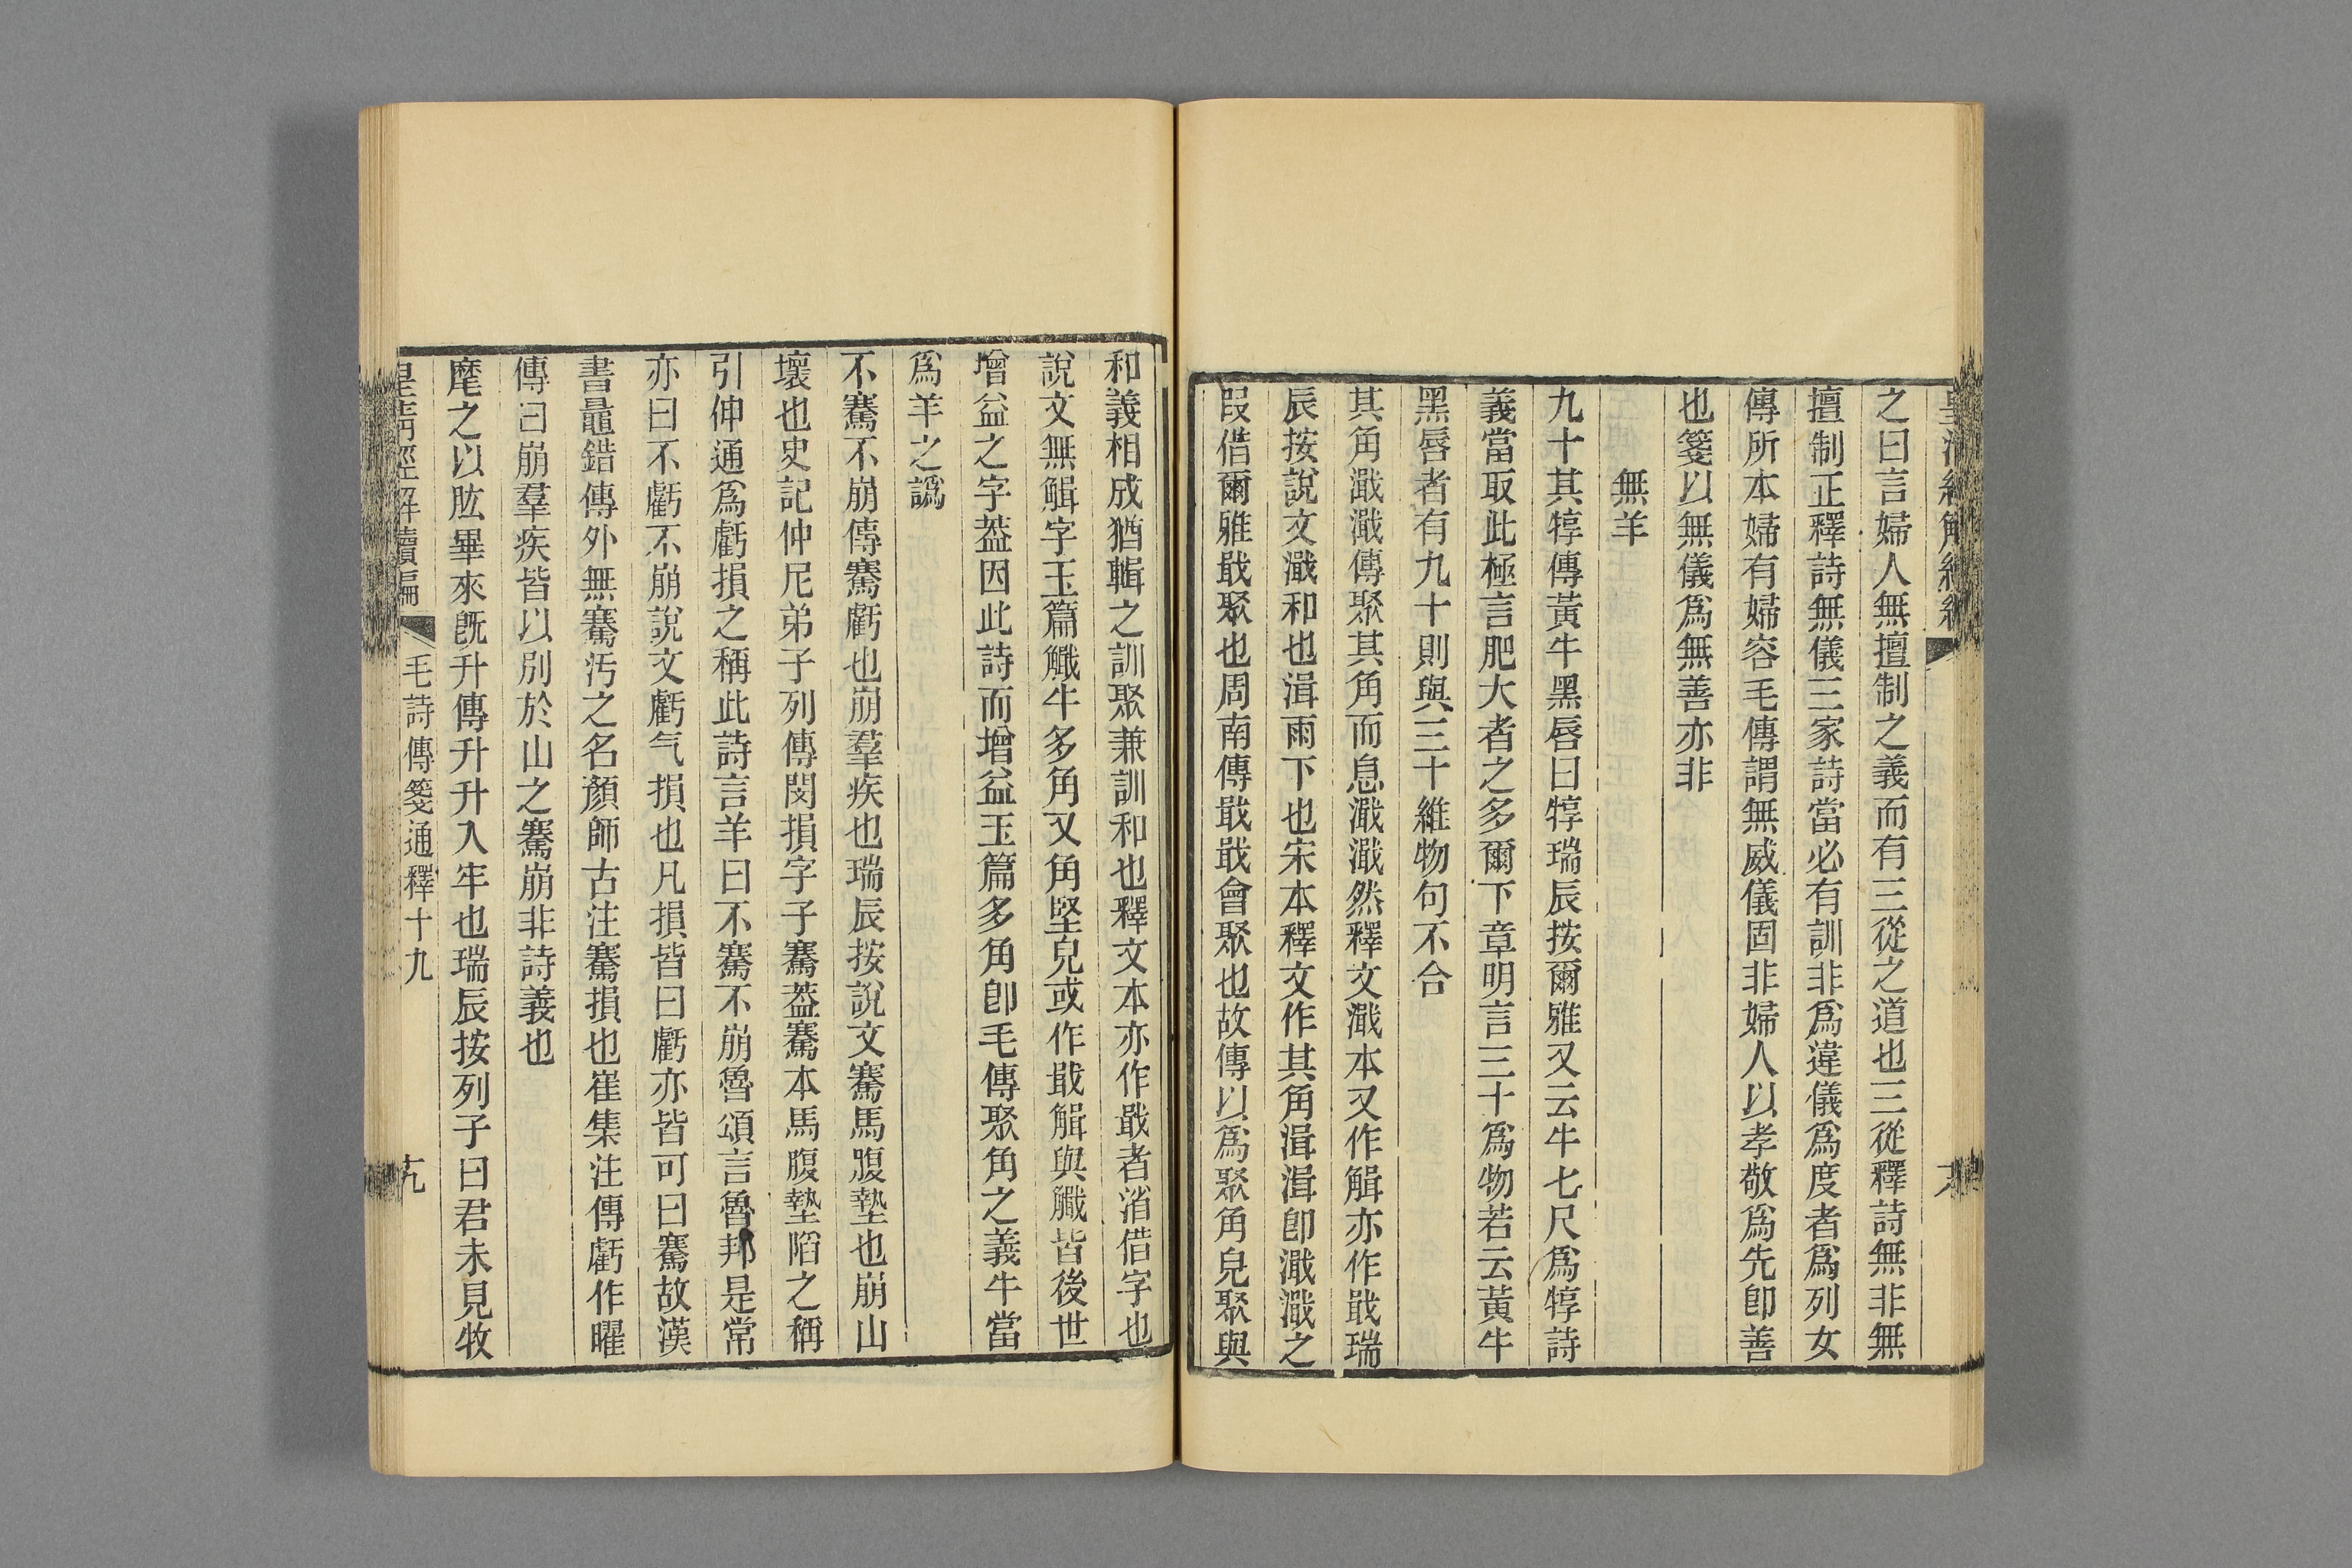 之曰言婦人無擅制之義而有三從之道也三從釋詩無非無
擅制正釋詩無儀三家詩當必有訓非爲違儀爲度者爲列女
傳所本婦有婦容毛傳謂無威儀固非婦人以孝敬爲先卽善
也箋以無儀爲無善亦非
無羊
九十其犉傳黃牛黑唇曰犉瑞辰按爾雅又云牛七尺爲犉詩
義當取此極言肥大者之多爾下章明言三十爲物若云黃牛
黑唇者有九十則與三十維物句不合
其角濈濈傳聚其角而息濈濈然釋文濈本又作觮亦作戢瑞
辰按說文濈和也湒雨下也宋本釋文作其角湒湒卽濈濈之
叚借爾雅戢聚也周南傳戢戢會聚也故傳以爲聚角皃聚與
和義相成猶輯之訓聚兼訓和也釋文本亦作戢者消借字也
說文無觮字玉篇觿牛多角又角堅皃或作戢觮與觿皆後世
增益之字葢因此詩而增益玉篇多角卽毛傳聚角之義牛當
爲羊之譌
不騫不崩傳騫虧也崩羣疾也瑞辰按說文騫馬腹墊也崩山
壞也史記仲尼弟子列傳閔損字子騫葢騫本馬腹墊陷之稱
引伸通爲虧損之稱此詩言羊曰不騫不崩魯頌言魯邦是常
亦曰不虧不崩說文虧气損也凡損皆曰虧亦皆可曰騫故漢
書鼂錯傳外無騫汚之名顏師古注騫損也崔集注傳虧作曜
傳曰崩羣疾皆以別於山之騫崩非詩義也
麾之以肱畢來旣升傳升升入牢也瑞辰按列子曰君未見牧
皇淸經解續編 毛詩傳箋通釋十九 十九